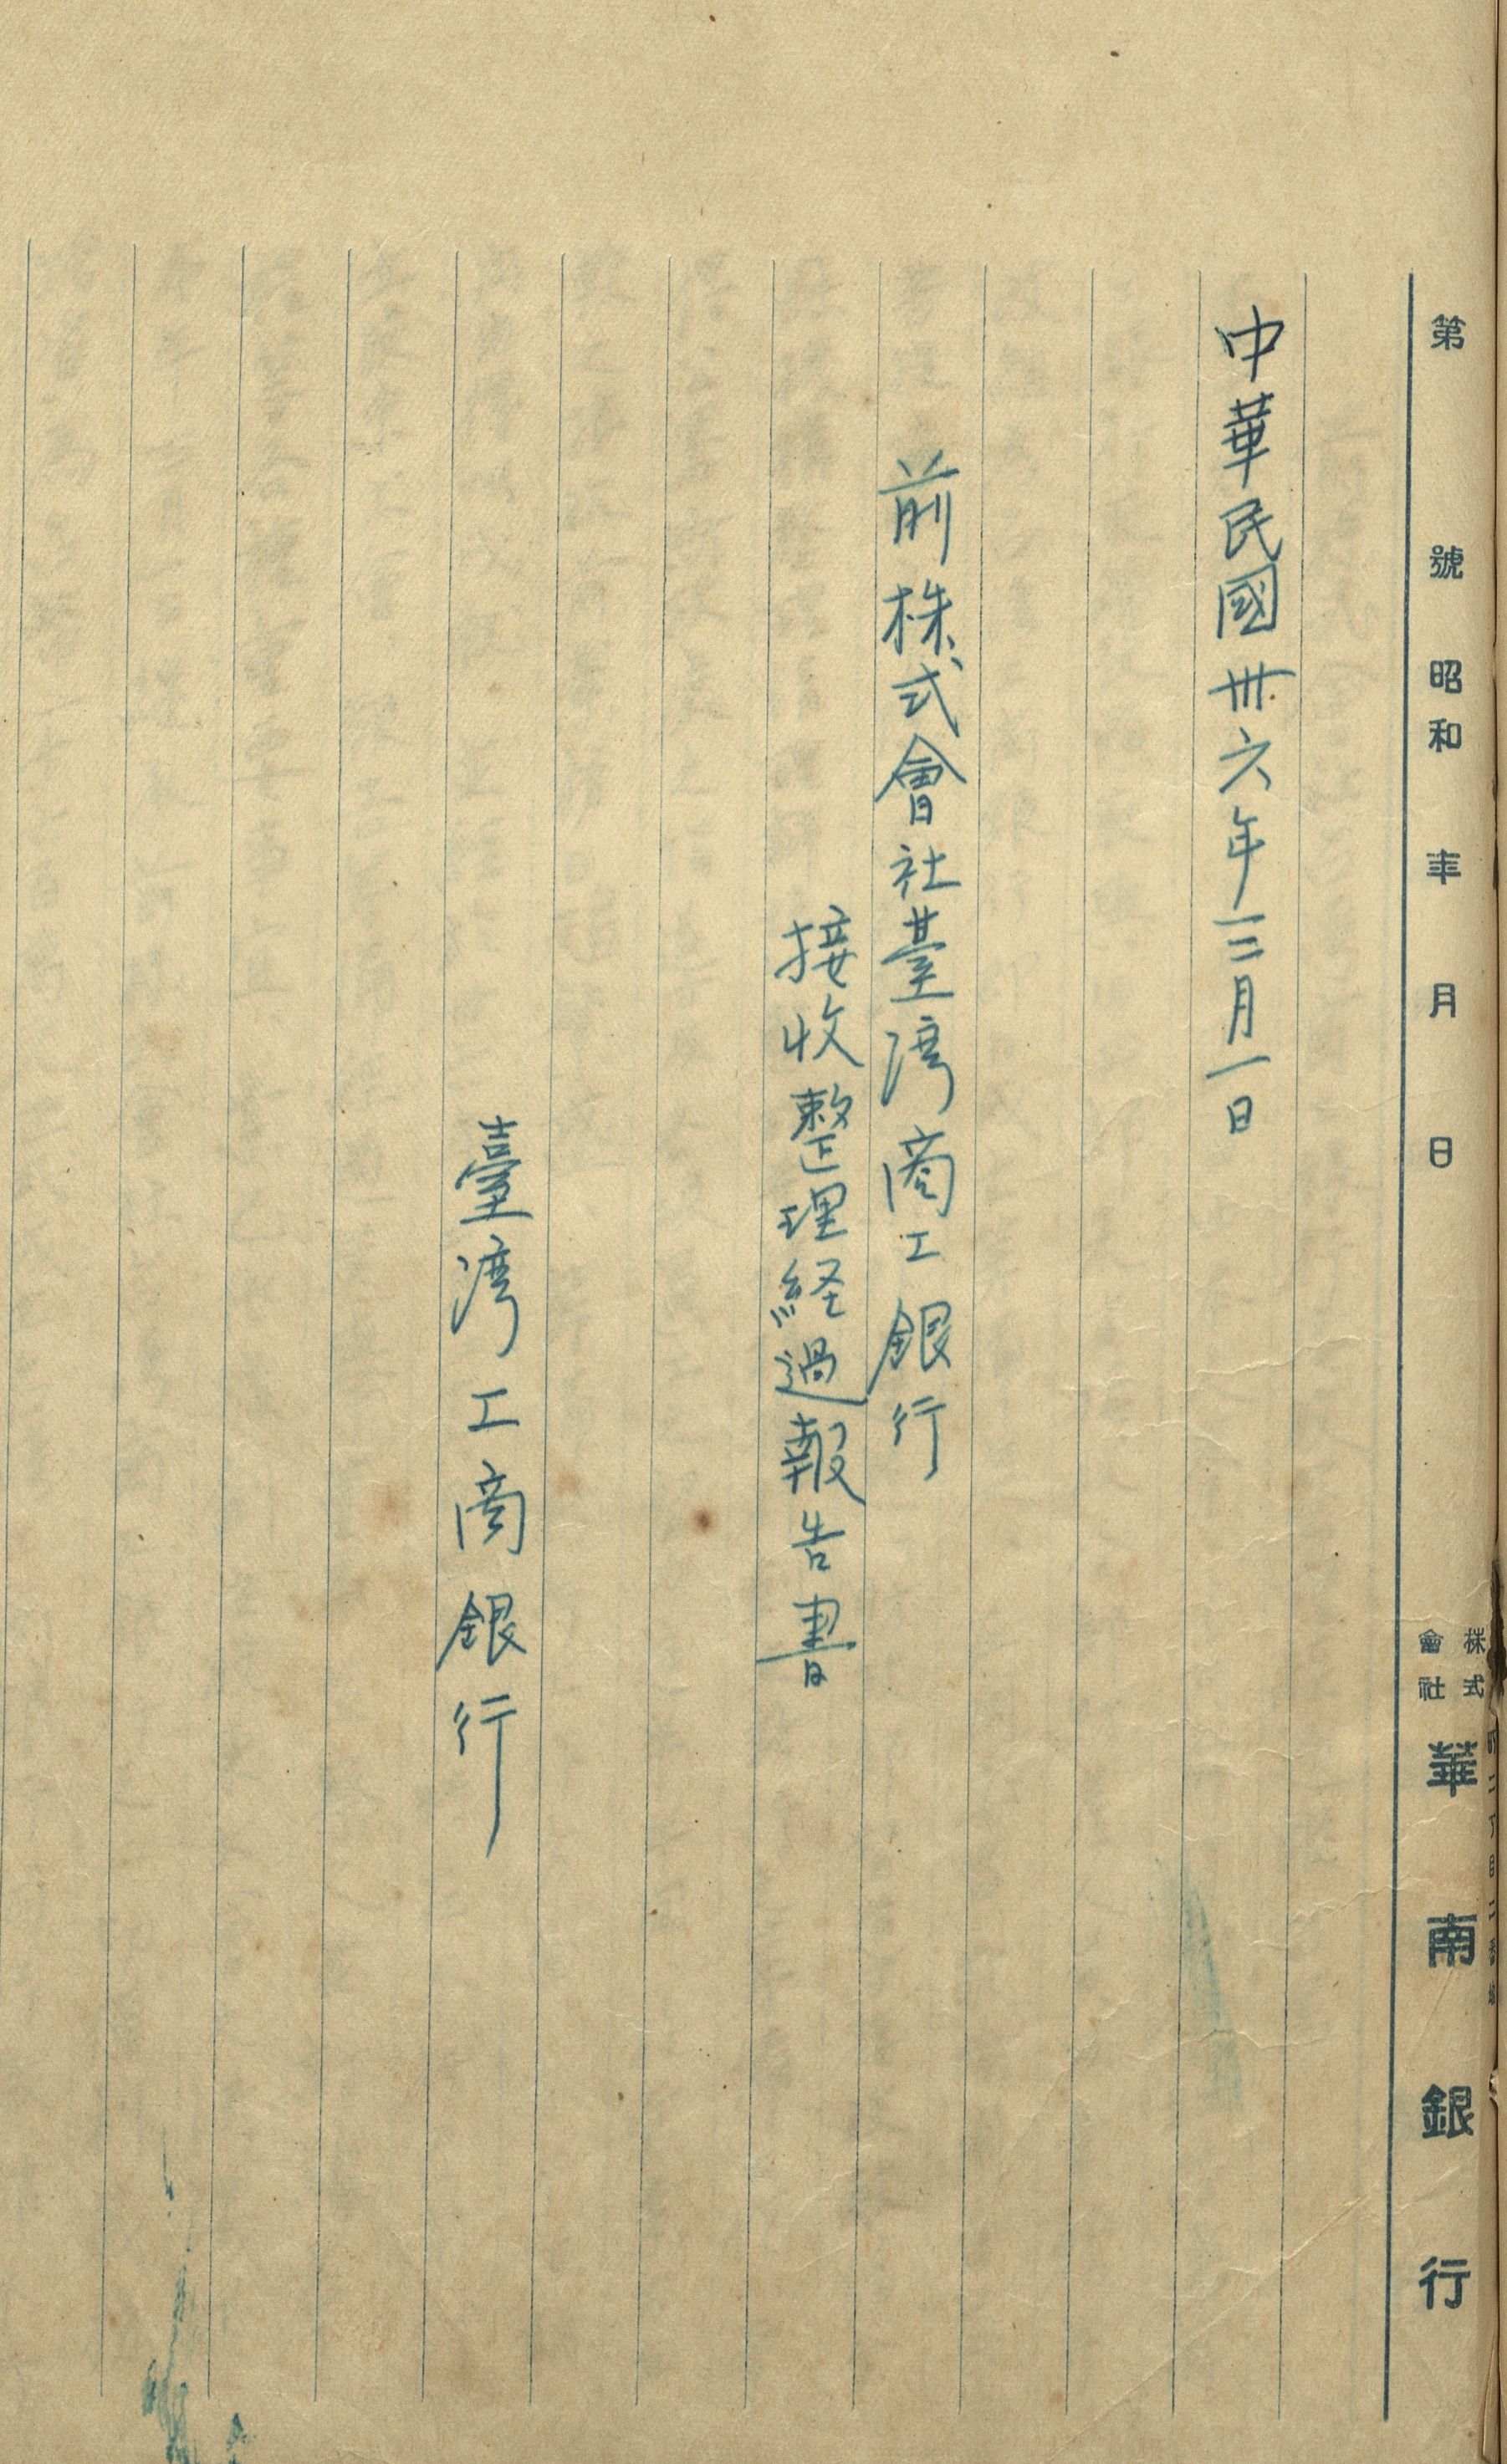 第 號 昭和 年 月 日 株式會社 華南銀行
中華民國卅六年三月一日
前株式會社臺湾商工銀行
接收整理経過報告書
臺湾工商銀行